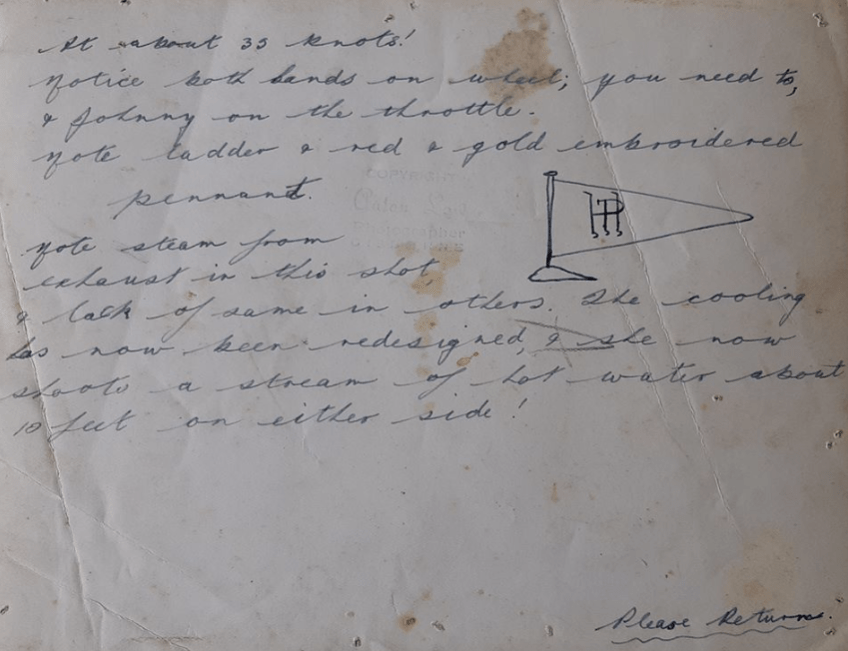 At about 35 knots!
Notice both hands on wheel; you need to,
& Johnny on the throttle.
Note ladder & red & gold embroidered
pennant.
COPYRIGHT
Photographer
Note steam from
exhaust in this shot,
& lack of same in others. The cooling
has now been redesigned, & she now
shoots a stream of hot water about
10 feet on either side!
Please Return.